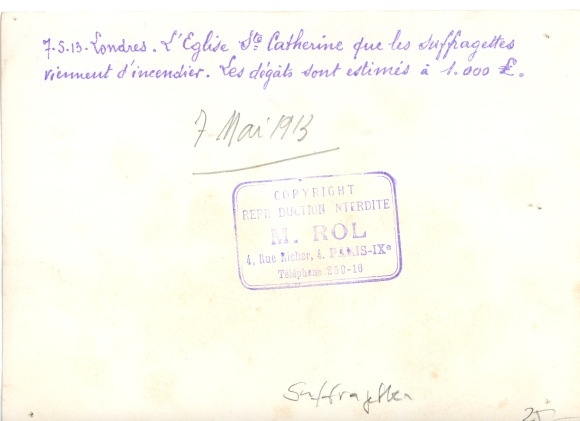 7.5.13. Londres. L'Eglise Ste Catherine que les suffragettes
viennent d'incendier. Les dégâts sont estimés à 1.000 £.
7 Mai 1913
COPYRIGHT
REPR DUCTION NTERDITE
M. ROL
4, Rue Richer, 4. PARIS-IXe
Téléphone 250-16
Suffragetten
25-